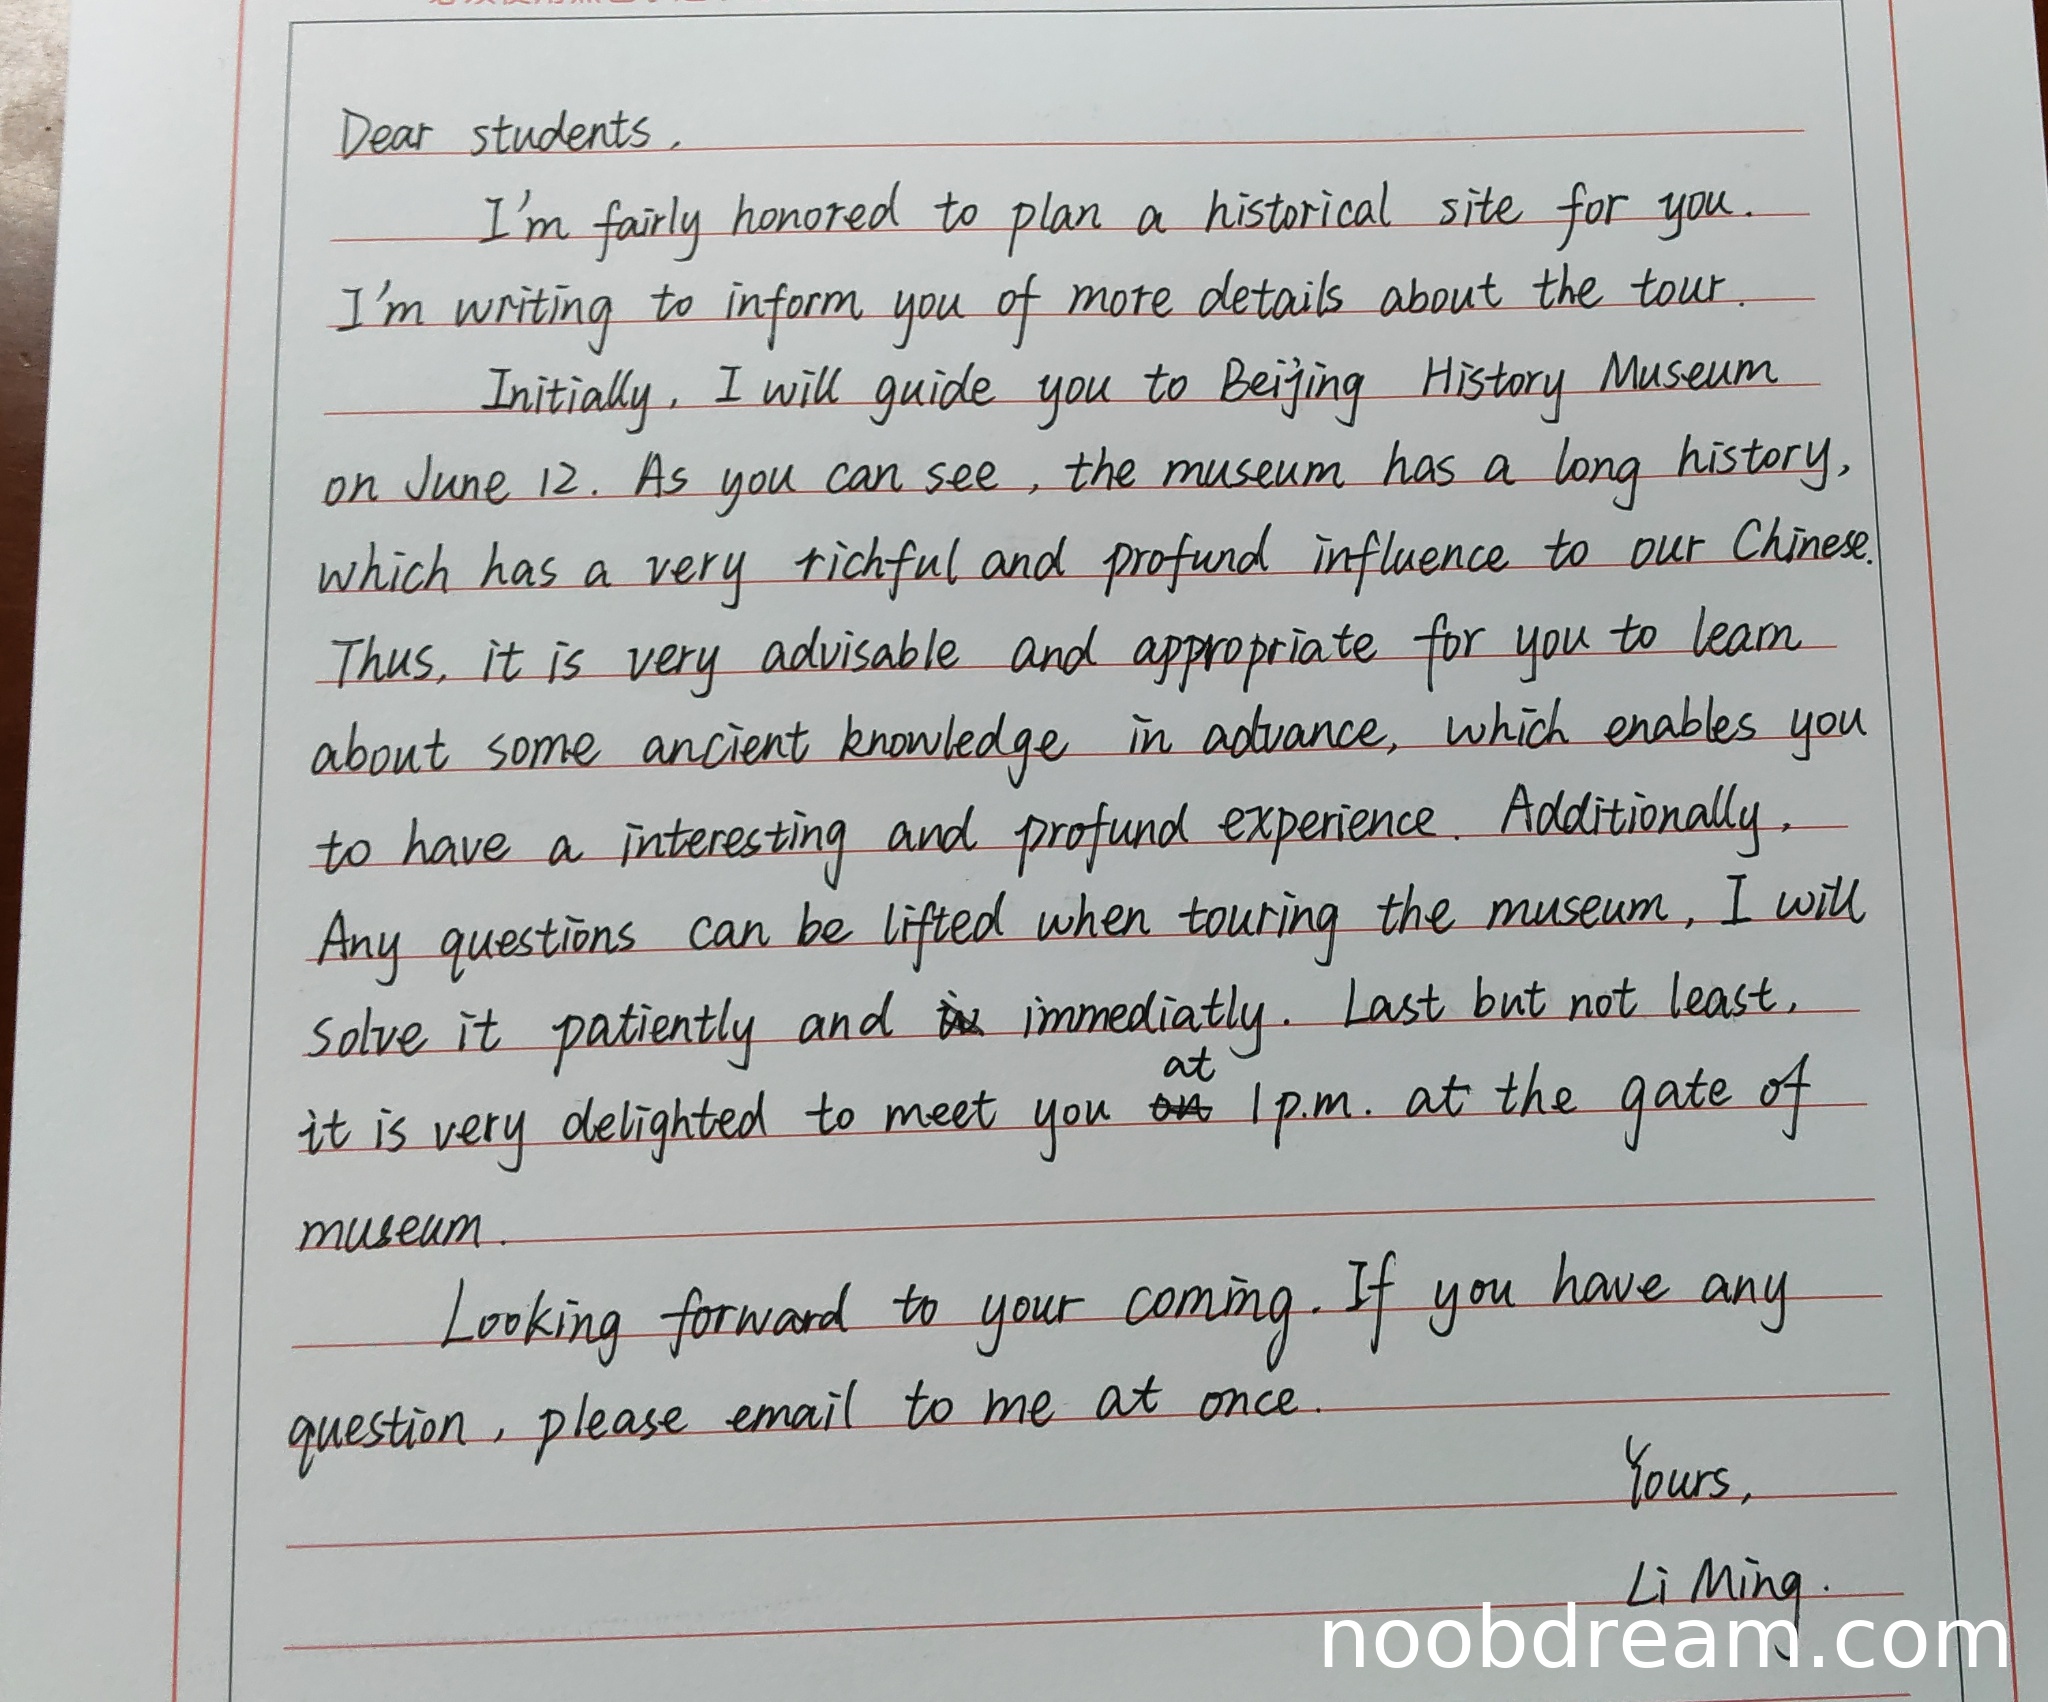 Dear students,
I'm fairly honored to plan a historical site for you.
I'm writing to inform you of more details about the tour.
Initially, I will guide you to Beijing History Museum
on June 12. As you can see, the museum has a long history,
which has a very richful and profund influence to our Chinese.
Thus, it is very advisable and appropriate for you to learn
about some ancient knowledge in advance, which enables you
to have a interesting and profund experience. Additionally,
Any questions can be lifted when touring the museum, I will
solve it patiently and immediatly. Last but not least,
it is very delighted to meet you at 1 p.m. at the gate of
museum.
Looking forward to your coming. If you have any
question, please email to me at once.
Yours,
Li Ming.
noobdream.com